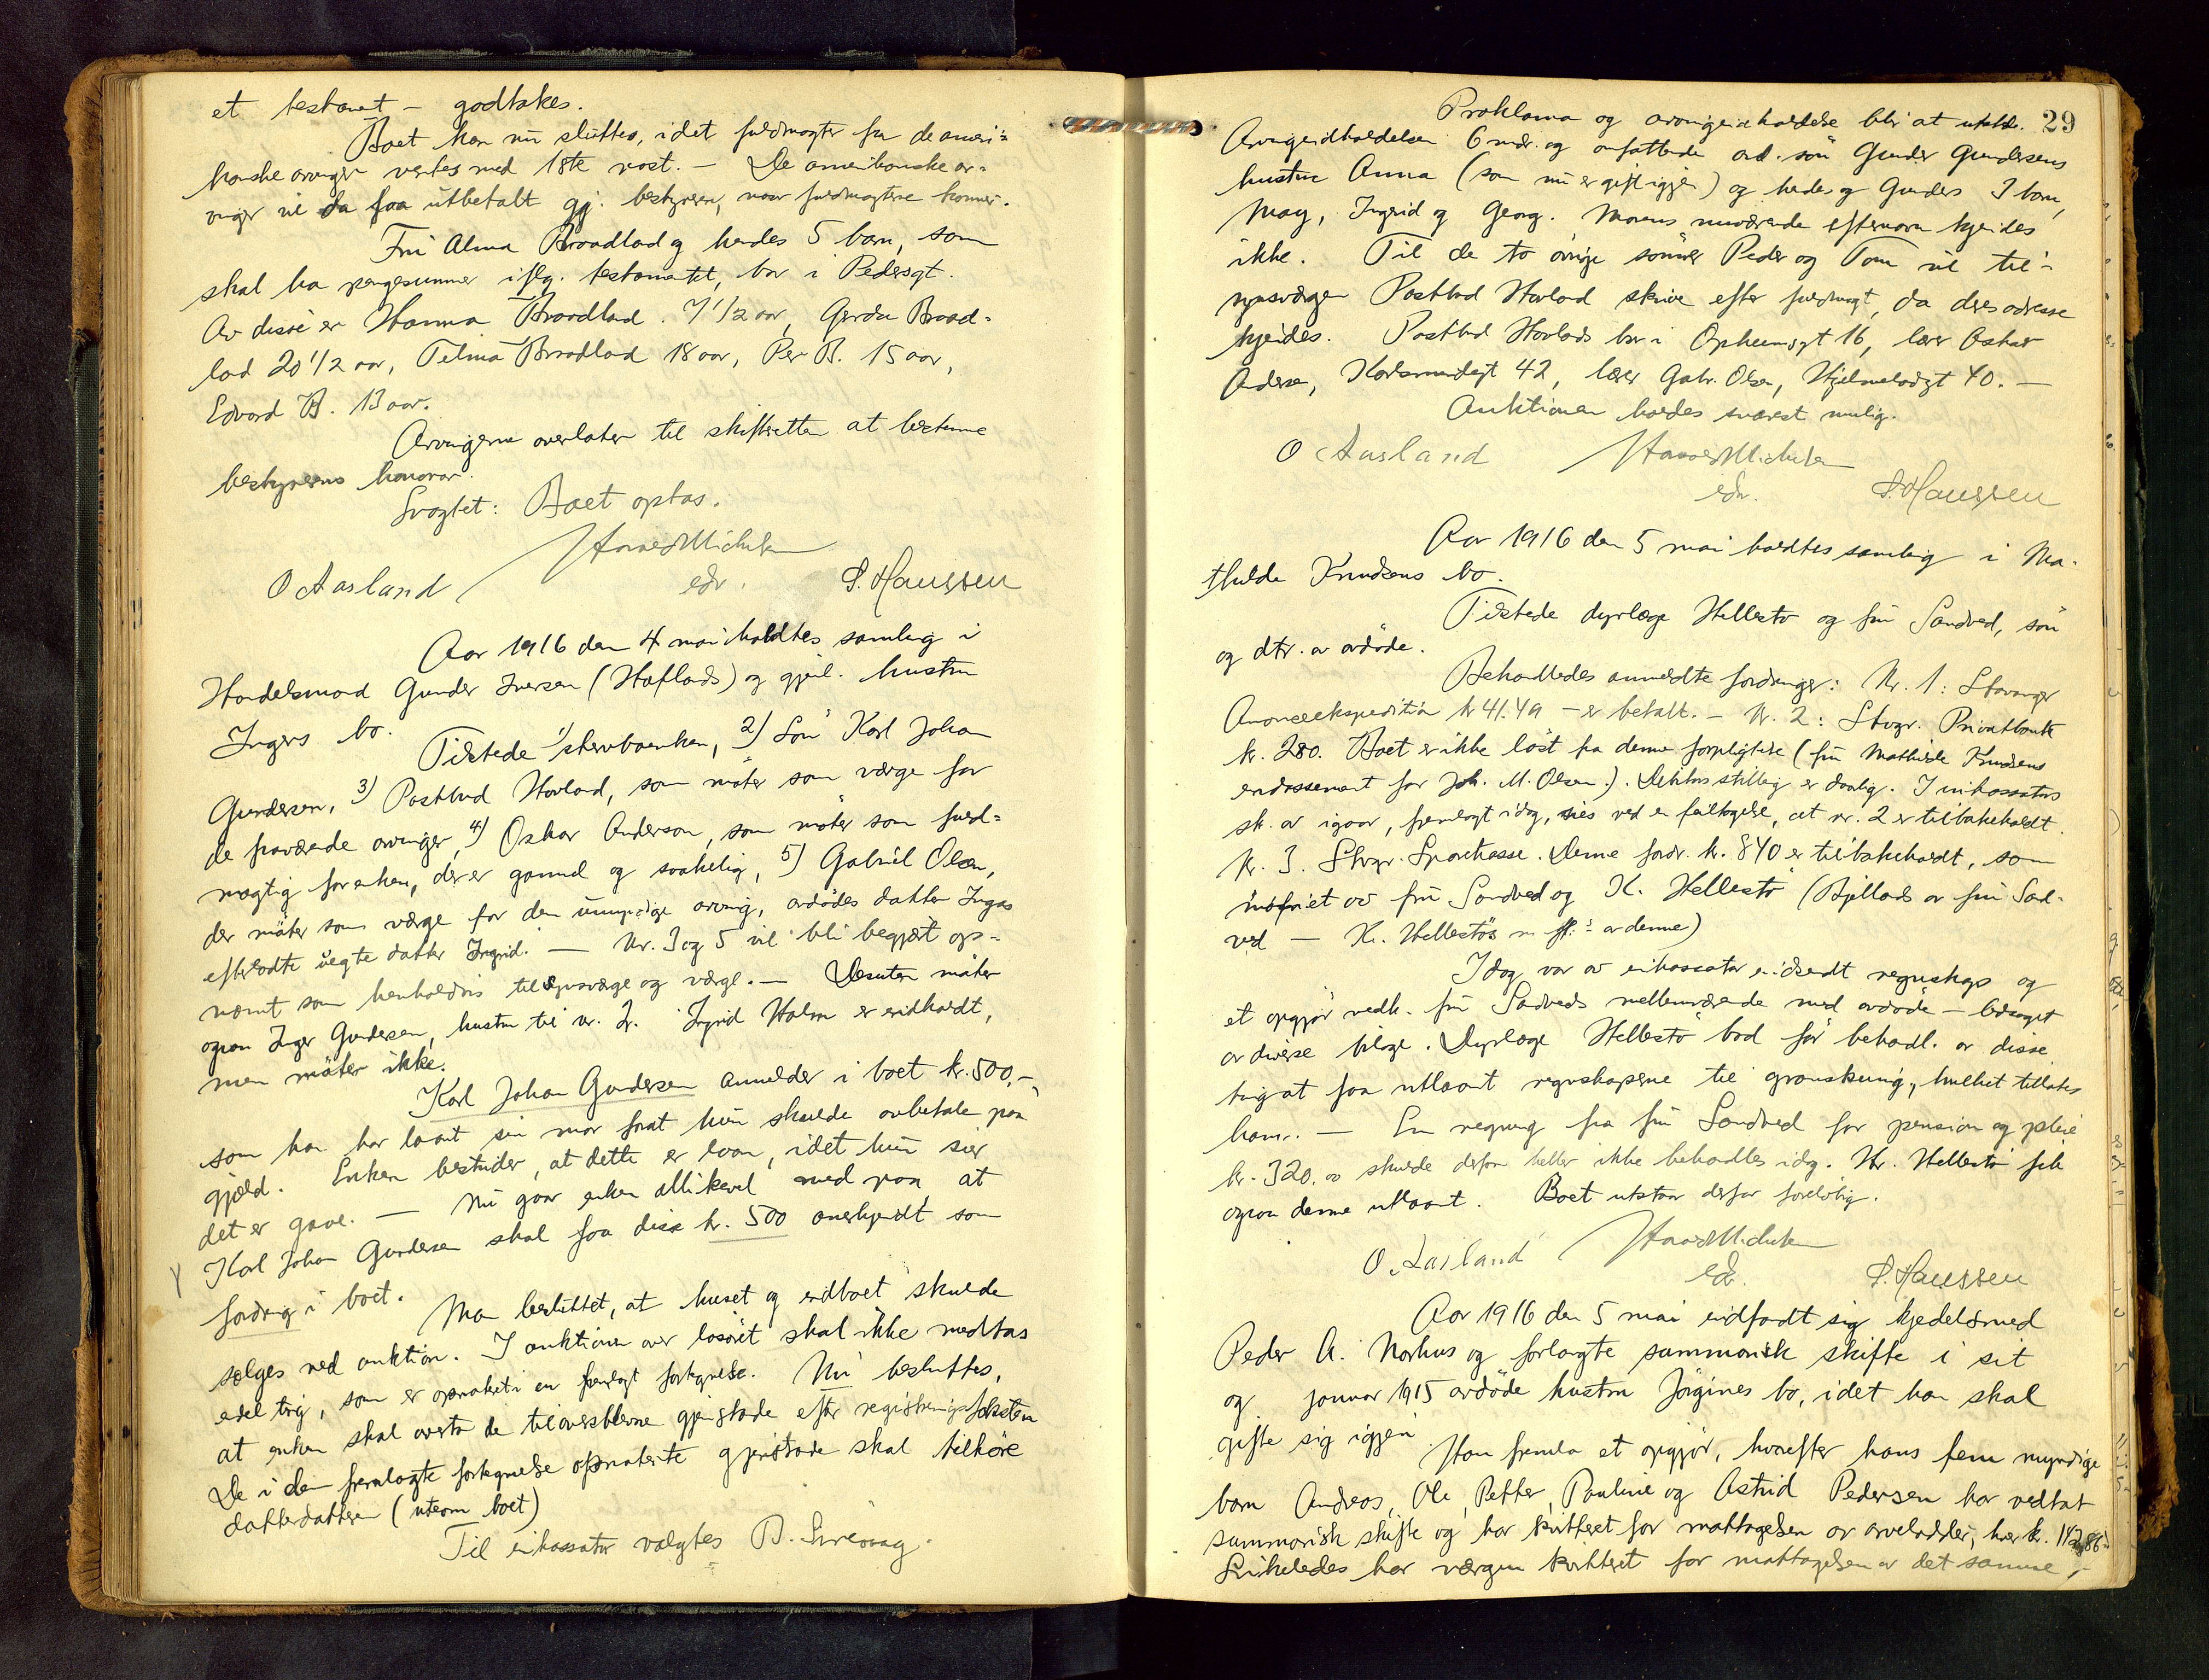 et testamt — godtakes.
Boet kan nu sluttes, idet fuldmagter fra de ameri=
kanske arvinger ventes med 1ste post. — De amerikanske ar=
vinger vil da faa utbetalt gj. bestyreren, naar fuldmagterne kommer.
Fru Alma Braadlad og hendes 5 barn, som
skal ha pengesummer iflg. testamentet, bor i Pedersgt.
Av disse er Hanna Braadlad. 7 1/2 aar, Gerda Braad=
lad 20 1/2 aar, Telma Braadlad 18 aar, Per B. 15 aar,
Edvard B. 13 aar.
Arvingerne overlater til skifteretten at bestemme
bestyrerens honorar.
Sragtet: Boet optas.
O Aasland
edr.
S. Hanssen
Aar 1916 den 4 mai holdtes samling i
Handelsmand Gunder Iversen (Haflads) og gjenl. hustru
Ingers bo.
Tilstede 1) stervboenken, 2) Søn Karl Johan
Gundersen, 3) Postbud Havlad, som møter som værge for
de fraværende arvinger, 4) Oskar Andersen, som møter som fuld=
mægtig for enken, der er gammel og svakelig, 5) Gabriel Olsen,
der møter som værge for den umyndige arving, avdødes datter Ingas
efterladte uegte datter Ingrid. — Nr. 3 og 5 vil bli begjært op=
nævnt som henholdsvis tilsynsværge og værge. — Desuten møter
ogsaa Inger Gundersen, hustru til nr. 2. Ingrid Halm er indkaldt,
men møter ikke.
Karl Johan Gundersen anmelder i boet kr. 500,-,
som han har laant sin mor forat hun skulde avbetale paa
gjæld. Enken bestrider, at dette er laan, idet hun sier
det er gave. — Nu gaar enken allikevel med paa at
Karl Johan Gundersen skal faa disse kr. 500 anerkjendt som
fordring i boet.
Man besluttet, at huset og indboet skulde
sælges ved auktion. I auktionen over løsøret skal ikke medtas
endel ting, som er opnotert i en fremlagt fortegnelse. Nu besluttes,
at enken skal overta de tiloversblevne gjenstande efter registreringstaksten
De i den fremlagte fortegnelse opnoterte gjenstande skal tilhøre
datterdatteren (utenom boet)
Til inkassator valgtes B.
29
Proklama og arvingeindkaldelse blir at utstede.
Arvingeindkaldelsen 6 mdr. og omfattende avd. søn Gunder Gundersens
hustru Anna (som nu er gift igjen) og hendes og Gunders 3 barn,
May, Ingrid og Georg. Morens nuværende efternavn kjendes
ikke. Til de to øvrige sønner Peder og Tom vil til=
synsværgen Postbud Havlad skrive efter fuldmagt, da deres adresse
kjendes. Postbud Havlads bor i Opheimsgt 16, lærer Oskar
Andersen, Karlsmindegt 42, lærer Gabr. Olsen, Hjelmelandsgt 40. —
Auktionen holdes snarest mulig.
O Aasland
edr.
S. Hanssen
Aar 1916 den 5 mai holdtes samling i Ma-
thilde Knudsens bo.
Tilstede dyrlæge Hellestø og fru Sandved, søn
og dtr. av avdøde.
Behandledes anmeldte fordringer: Nr. 1: Stavanger
Annonceekspedition kr 41.49 — er betalt. — Nr. 2: Stvgr. Privatbank
kr. 280. Boet er ikke løst fra denne forpligtelse (fru Mathilde Knudsens
endossement for Joh. M. Olsen.). Debitors stilling er daarlig. I inkassators
sk. av igaar, fremlagt idag, sies ved en feiltagelse, at nr. 2 er tilbakekaldt.
Nr. 3. Stvgr. Sparekasse. Denne fordr. kr. 840 er tilbakekaldt, som
indfriet av fru Sandved og K. Hellestø (Bjelland av fru Sand-
ved — K. Hellestøs av denne)
Idag var av inkassator indsendt regnskap og
et opgjør vedk. fru Sandveds mellemværende med avdøde — ledsaget
av diverse bilage. Dyrlæge Hellestø bad før behandl. av disse
ting at faa utlaant regnskaperne til granskning, hvilket tillates
ham. — En regning fra fru Sandved for pension og pleie
kr. 320.00 skulde derfor heller ikke behandles idag. Hr. Hellestø fik
ogsaa denne utlaant. Boet utstaar derfor foreløbig.
O. Aasland
edr.
S. Hanssen
Aar 1916 den 5 mai indfandt sig kjedelsmed
Peder A. Norhus og forlangte summarisk skifte i sit
og januar 1915 avdøde hustru Jørgines bo, idet han skal
gifte sig igjen
Han fremla et opgjør, hvorefter hans fem myndige
barn Andreas, Ole, Petter, Pauline og Astrid Pedersen har vedtat
summarisk skifte og har kvitteret for mottagelsen av arvelodder, hver kr. 142,86.
Likeledes har værgen kvitteret for mottagelsen av det samme,-